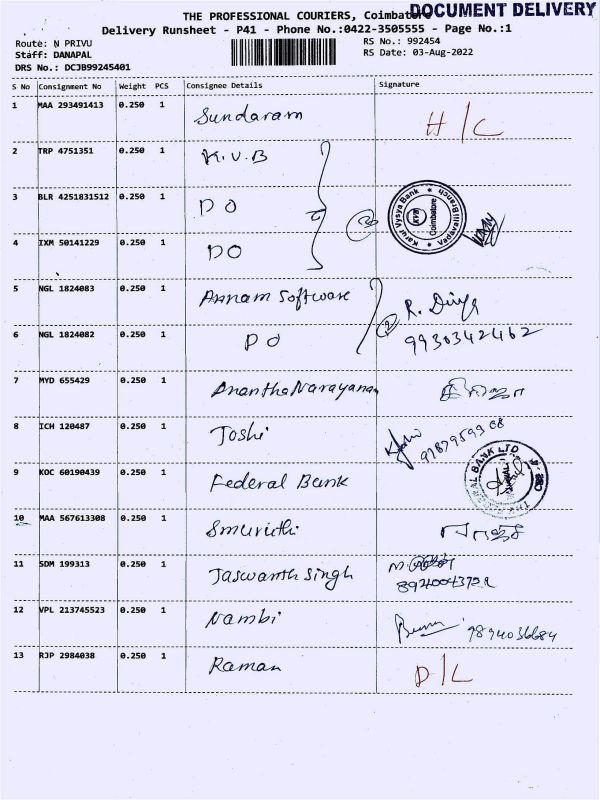 DOCUMENT DELIVERY
THE PROFESSIONAL COURIERS, Coimbatore
Delivery Runsheet - P41 - Phone No.:0422-3505555 - Page No.:1
Route: N PRIVU RS No.: 992454
Staff: DANAPAL RS Date: 03-Aug-2022
DRS No.: DCJB99245401
S No Consignment No Weight PCS Consignee Details Signature
1 MAA 293491413 0.250 1 Sundaram H/C
2 TRP 4751351 0.250 1 K.V.B
3 BLR 4251831512 0.250 1 DO
Karur Vysya Bank Vadavalli Branch
KVB
Coimbatore
4 IXM 50141229 0.250 1 DO
5 NGL 1824083 0.250 1 Annam Software R. Divya
6 NGL 1824082 0.250 1 DO 2 9930342462
7 MYD 655429 0.250 1 Anantha Narayanan
8 ICH 120487 0.250 1 Joshi
9 KOC 60190439 0.250 1 Federal Bank
10 MAA 567613308 0.250 1 Smuruthi
11 SDM 199313 0.250 1 Jaswanth Singh
12 VPL 213745523 0.250 1 Nambi 9894036684
13 RJP 2984038 0.250 1 Raman D/L